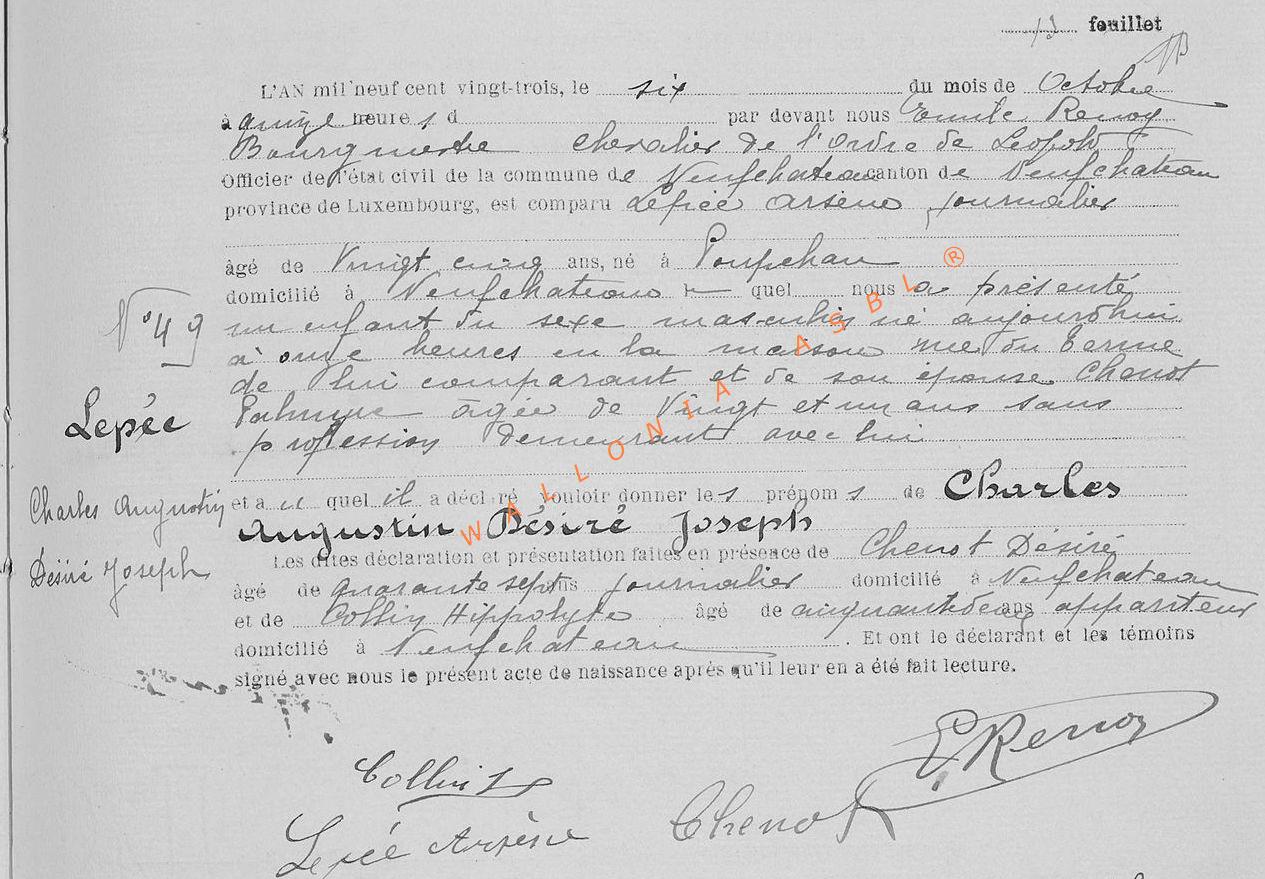 13 feuillet
L'AN mil neuf cent vingt-trois, le six du mois de Octobre
à quinze heures d par devant nous Emile Renoy
Bourgmestre Chevalier de l'Ordre de Léopold
Officier de l'état civil de la commune de Neufchateau canton de Neufchateau
province de Luxembourg, est comparu Lepéé Arsène journalier
âgé de Vingt cinq ans, né à Poupehan
domicilié à Neufchateau quel nous a présenté
N° 49
un enfant du sexe masculin né aujourd'hui
à onze heures en la maison rue du Terme
de lui comparant et de son épouse Chenot
Lepée
Palmyre âgée de Vingt et un ans sans
profession demeurant avec lui
et a u quel il a déclaré vouloir donner les prénoms de Charles
Charles Augustin
Augustin Désiré Joseph
Les dites déclaration et présentation faites en présence de Chenot Désiré
Désiré Joseph
âgé de quarante sept ans journalier domicilié à Neufchateau
et de Collin Hippolyte âgé de cinquante deux ans appariteur
domicilié à Neufchateau . Et ont le déclarant et les témoins
signé avec nous le présent acte de naissance après qu'il leur en a été fait lecture.
WALLONIA ASBL ®
E Renoy
Collin
Chenot
Lepée Arsène